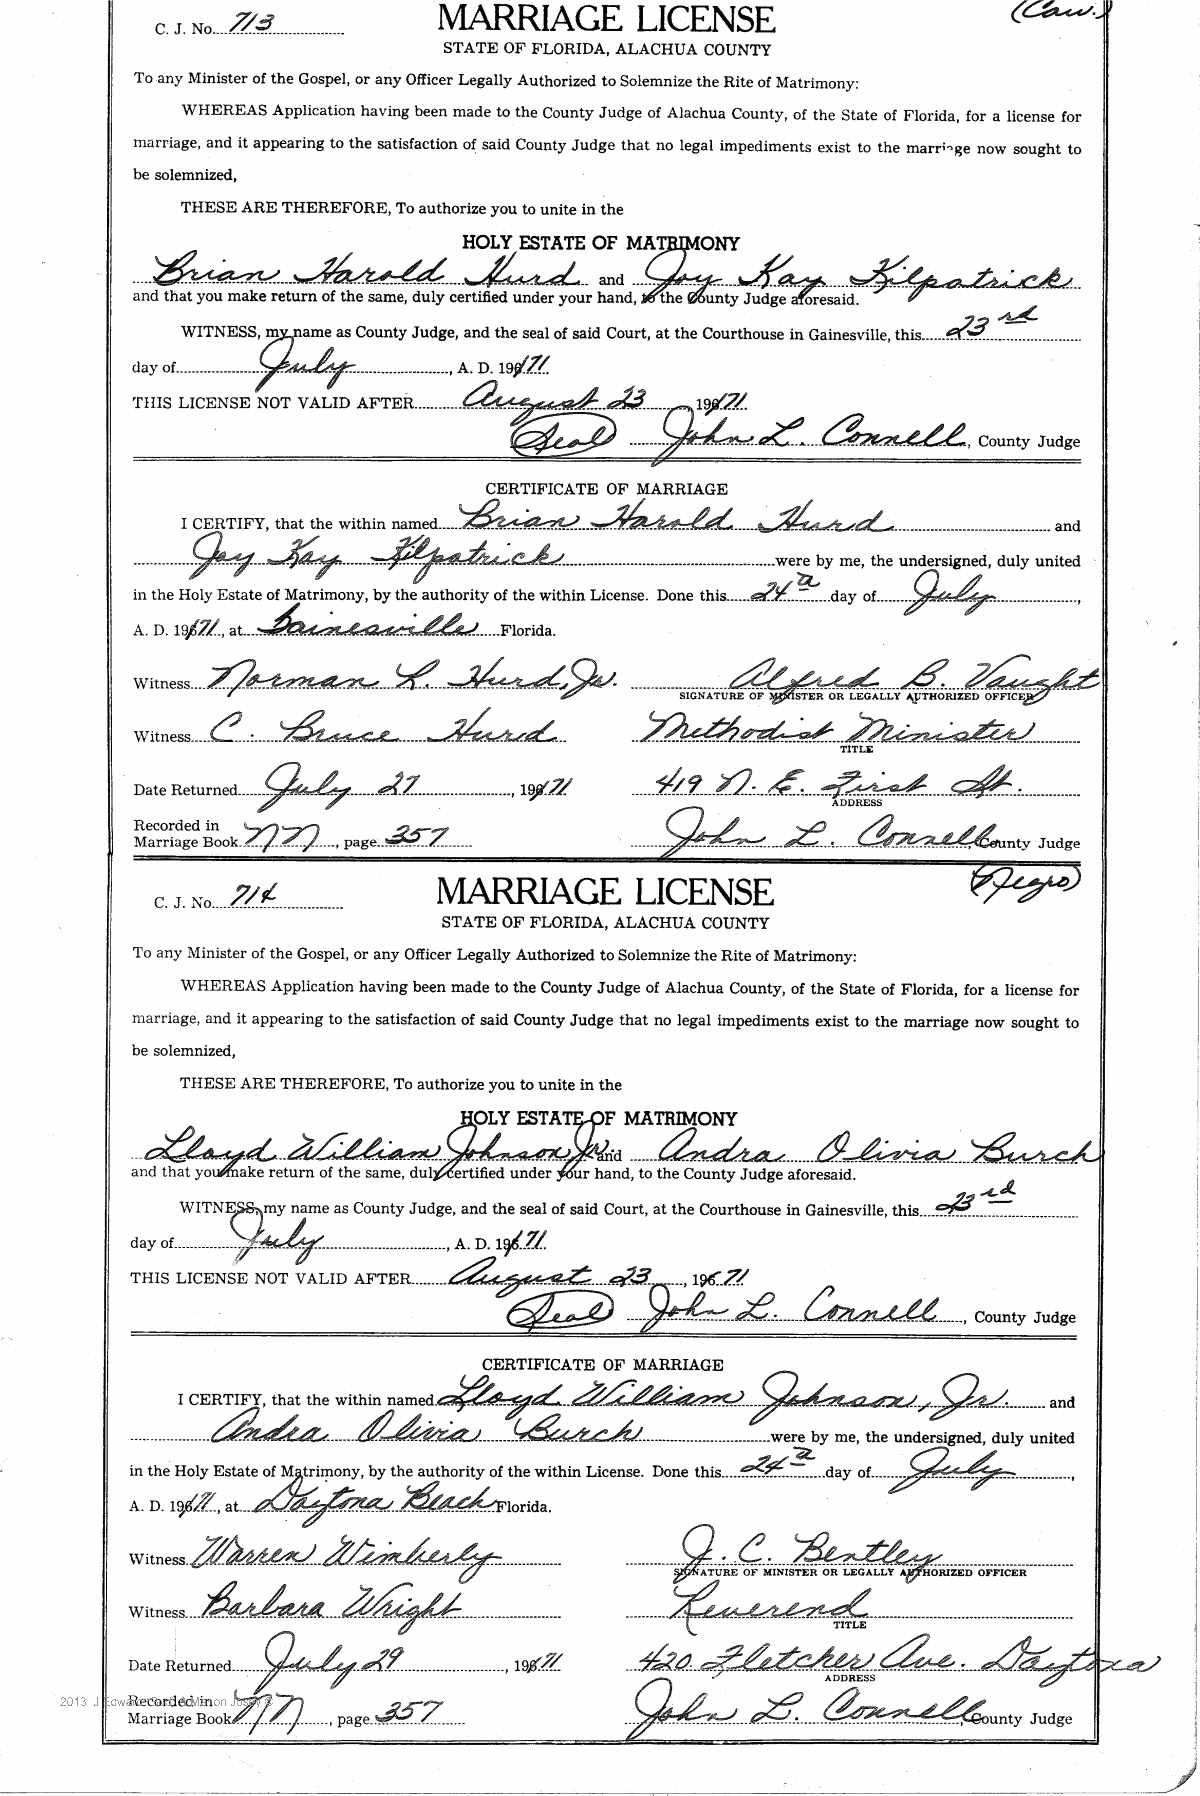 C. J. No. 713 MARRIAGE LICENSE (Cau.)
STATE OF FLORIDA, ALACHUA COUNTY
To any Minister of the Gospel, or any Officer Legally Authorized to Solemnize the Rite of Matrimony:
WHEREAS Application having been made to the County Judge of Alachua County, of the State of Florida, for a license for
marriage, and it appearing to the satisfaction of said County Judge that no legal impediments exist to the marriage now sought to
be solemnized,
THESE ARE THEREFORE, To authorize you to unite in the
HOLY ESTATE OF MATRIMONY
Brian Harold Hurd and Joy Kay Kilpatrick
and that you make return of the same, duly certified under your hand, to the County Judge aforesaid.
WITNESS, my name as County Judge, and the seal of said Court, at the Courthouse in Gainesville, this 23rd
day of July, A. D. 1971.
THIS LICENSE NOT VALID AFTER August 23 1971
(Seal) John L. Connell, County Judge
CERTIFICATE OF MARRIAGE
I CERTIFY, that the within named Brian Harold Hurd and
Joy Kay Kilpatrick were by me, the undersigned, duly united
in the Holy Estate of Matrimony, by the authority of the within License. Done this 24th day of July,
A. D. 1971, at Gainesville Florida.
Witness Norman L. Hurd, Jr. Alfred B. Vaught
SIGNATURE OF MINISTER OR LEGALLY AUTHORIZED OFFICER
Witness C. Bruce Hurd Methodist Minister
TITLE
Date Returned July 27, 1971 419 N. E. First St.
ADDRESS
Recorded in
Marriage Book NN, page 357 John L. Connell County Judge
(Negro)
C. J. No. 714 MARRIAGE LICENSE
STATE OF FLORIDA, ALACHUA COUNTY
To any Minister of the Gospel, or any Officer Legally Authorized to Solemnize the Rite of Matrimony:
WHEREAS Application having been made to the County Judge of Alachua County, of the State of Florida, for a license for
marriage, and it appearing to the satisfaction of said County Judge that no legal impediments exist to the marriage now sought to
be solemnized,
THESE ARE THEREFORE, To authorize you to unite in the
HOLY ESTATE OF MATRIMONY
Lloyd William Johnson Jr. and Andra Olivia Burch
and that you make return of the same, duly certified under your hand, to the County Judge aforesaid.
WITNESS, my name as County Judge, and the seal of said Court, at the Courthouse in Gainesville, this 23rd
day of July, A. D. 1971.
THIS LICENSE NOT VALID AFTER August 23, 1971
(Seal) John L. Connell, County Judge
CERTIFICATE OF MARRIAGE
I CERTIFY, that the within named Lloyd William Johnson, Jr. and
Andra Olivia Burch were by me, the undersigned, duly united
in the Holy Estate of Matrimony, by the authority of the within License. Done this 24th day of July,
A. D. 1971, at Daytona Beach Florida.
Witness Warren Wimberly J. C. Bentley
SIGNATURE OF MINISTER OR LEGALLY AUTHORIZED OFFICER
Witness Barbara Wright Reverend
TITLE
Date Returned July 29, 1971 420 Fletcher Ave. Daytona
ADDRESS
2013 Recorded in
Marriage Book NN, page 357 John L. Connell, County Judge